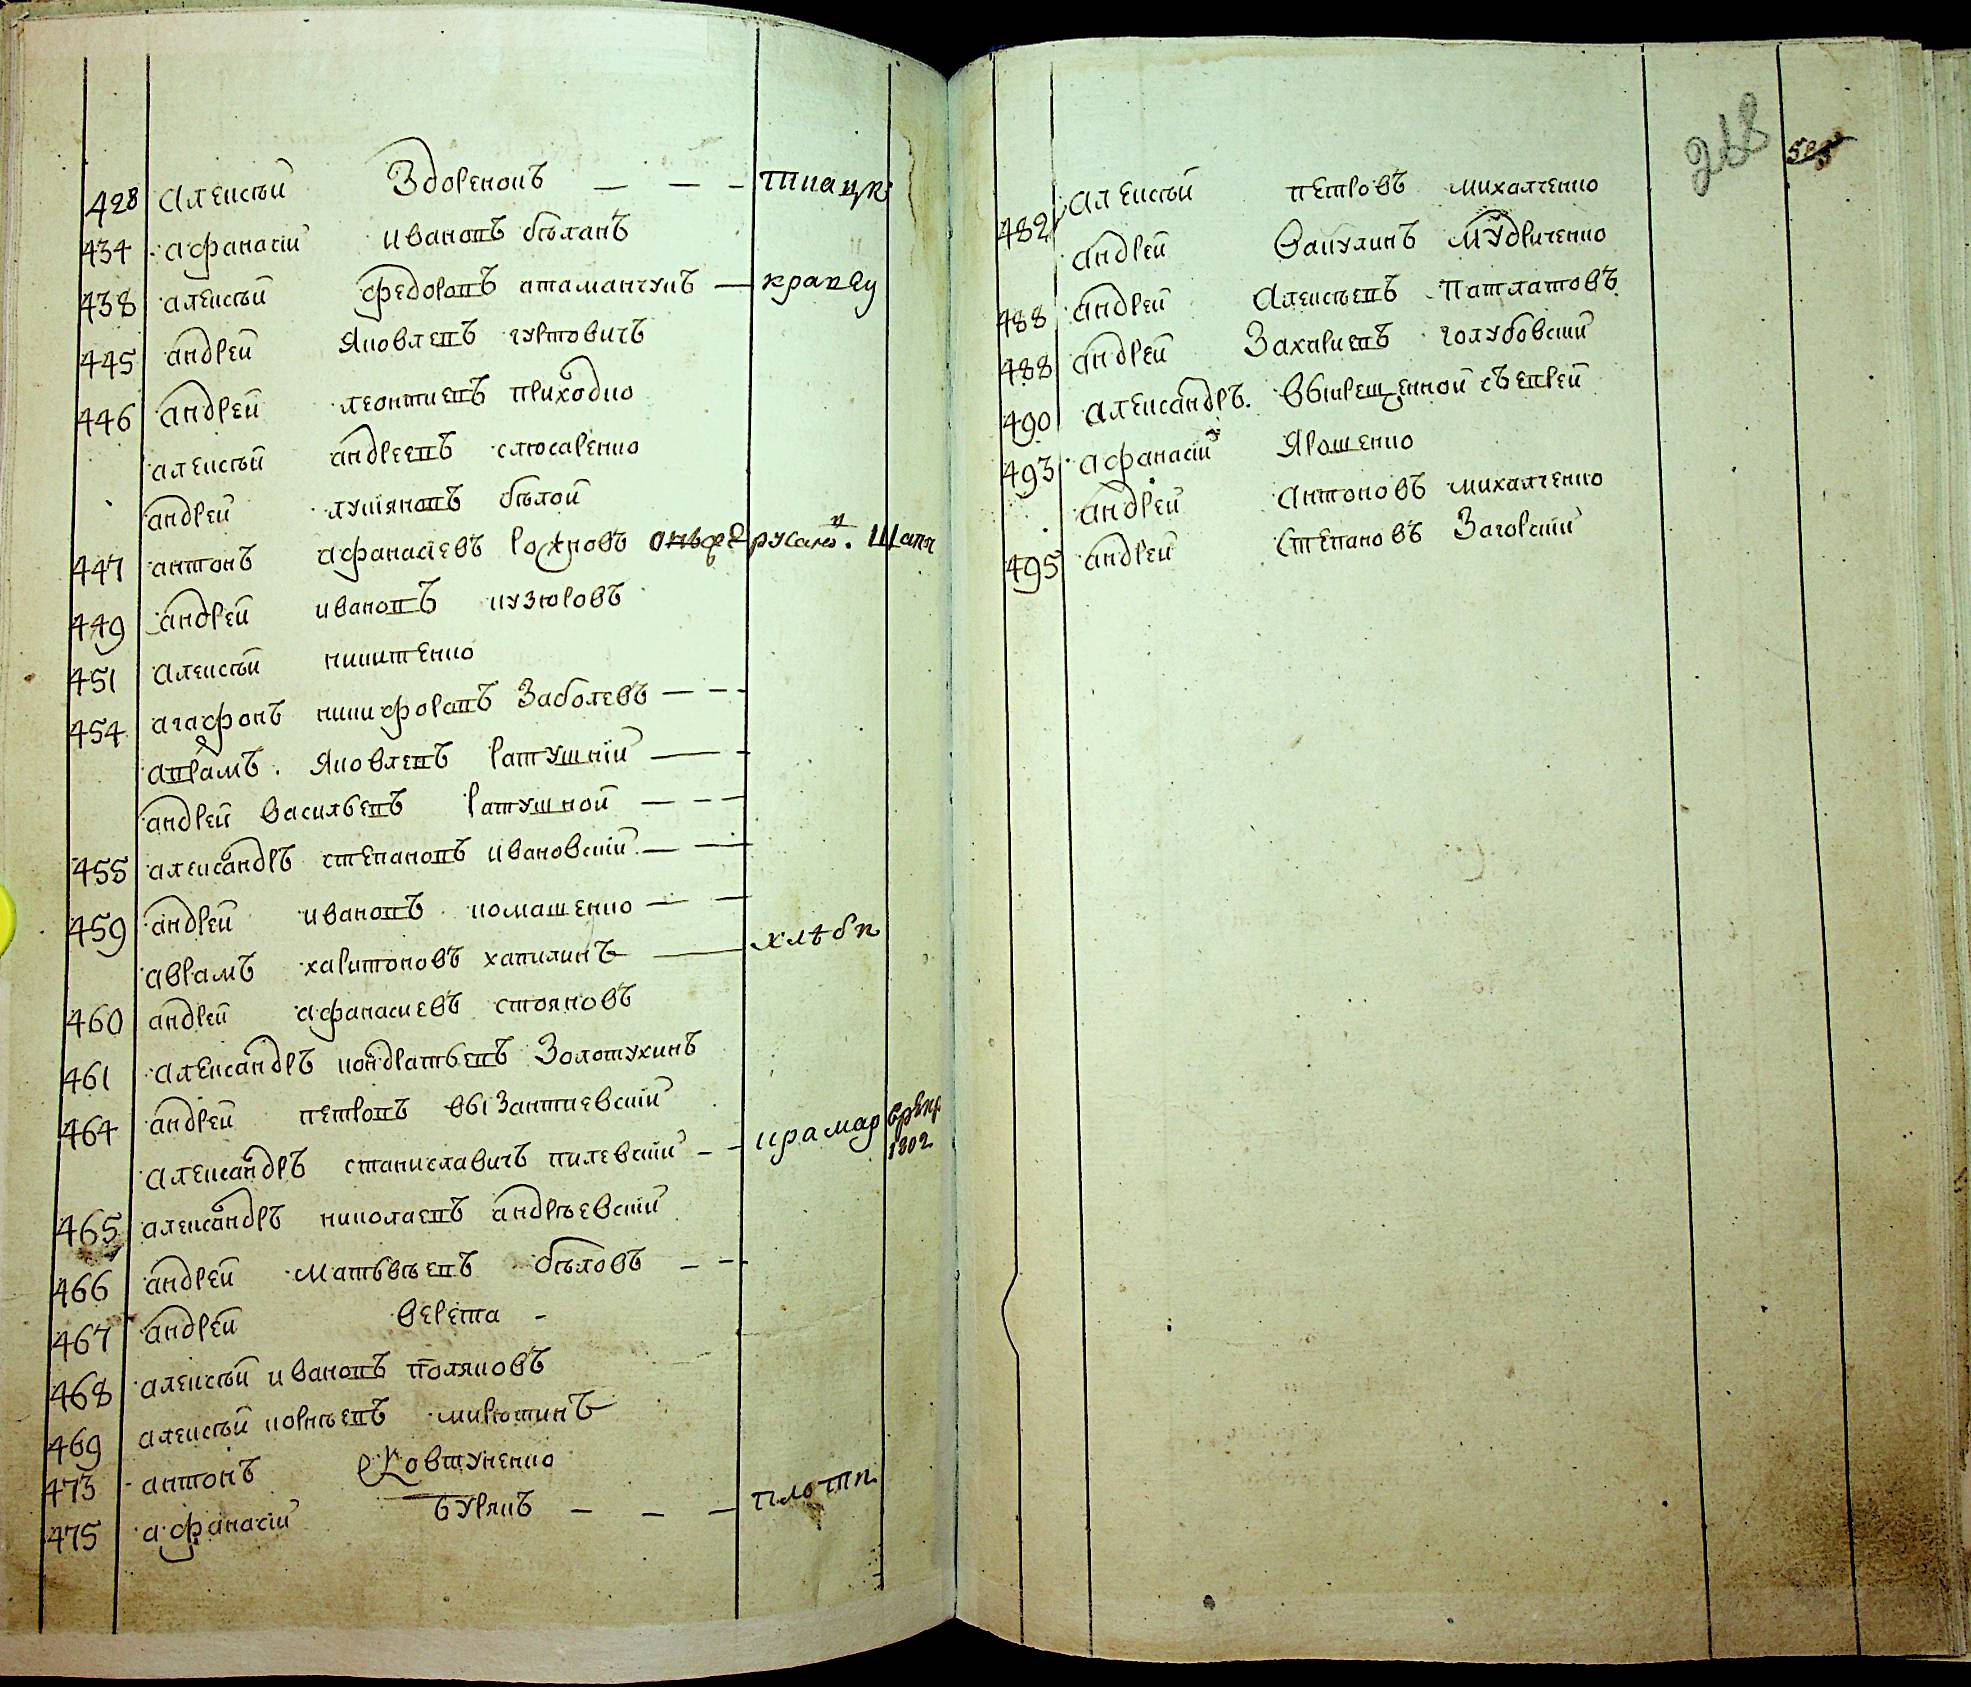 428 Алексѣй Здоренокъ — — — ткацк
434 афанасiй ивановъ бѣланъ
438 алексѣй федоровъ атаманчукъ — кравец
445 андрей Яковлевъ гуртовичъ
446 андрей леонтиевъ приходко
алексѣй андреевъ слюсаренко
андрей лукiяновъ бѣлой
447 антонъ афанасiевъ рохновъ
449 андрей ивановъ кузюровъ
451 Алексѣй никитенко
454 агафонъ никифоровъ Заболевъ — — —
аврамъ. Яковлевъ ратушнiй — —
андрей васильевъ ратушной — — —
455 александръ степановъ ивановскiй — —
459 андрей ивановъ комашенко — —
аврамъ харитоновъ хапилинъ — хлѣбн
460 андрей афанасиевъ стояновъ
461 Александръ кондратьевъ Золотухинъ
464 андрей петровъ выЗантиевскiй
Александръ станиславичъ пилевскiй — — крамар
1802
465 александръ николаевъ андрѣевскiй
466 андрей матьвѣевъ бѣловъ — —
467 андрей верета -
468 алексѣй ивановъ поляковъ
469 алексѣй корнѣевъ мирютинъ
473 антонъ Ковтуненко
475 афанасiй бурякъ — — — плотн
268
482 Алексѣй петровъ михалченко
андрей Вакулинъ мудриченко
488 андрей Алексѣевъ Патлатовъ
488 андрей Захариевъ голубовскiй
490 Александръ. выкрещенной съевреи
493 афанасiй Ярошенко
андрей антоновъ михалченко
495 андрей Степановъ Загорскiй